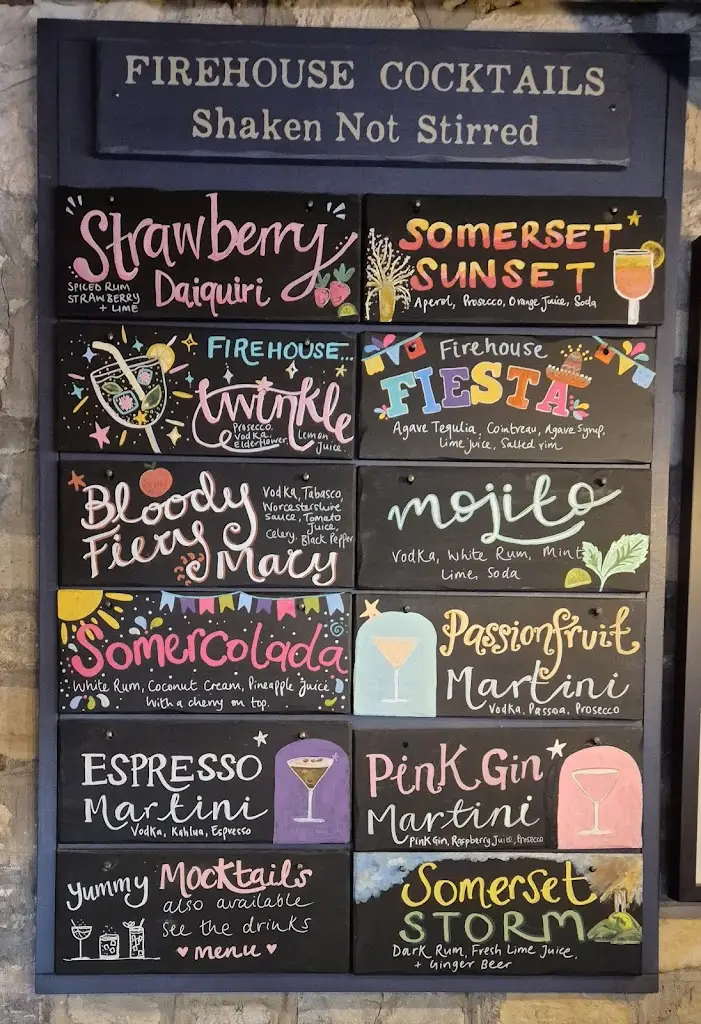 FIREHOUSE COCKTAILS
Shaken Not Stirred
Strawberry
Daiquiri
SPICED RUM
STRAWBERRY
+ LIME
SOMERSET
SUNSET
Aperol, Prosecco, Orange Juice, Soda
FIREHOUSE...
twinkle
Prosecco,
Vodka,
Elderflower,
Lemon
Juice.
Firehouse
FIESTA
Agave Tequlia, Cointreau, Agave Syrup,
Lime juice, Salted rim
Bloody
Fiery
Mary
Vodka, Tabasco,
Worcestershire
Sauce, Tomato
Juice,
Celery, Black Pepper
mojito
Vodka, White Rum, Mint
Lime, Soda
Somercolada
White Rum, Coconut Cream, Pineapple Juice
With a cherry on top.
Passionfruit
Martini
Vodka, Passoa, Prosecco
ESPRESSO
Martini
Vodka, Kahlua, Espresso
Pink Gin
Martini
Pink Gin, Raspberry Juice, Prosecco
yummy Mocktails
also available
see the drinks
menu
Somerset
STORM
Dark Rum, Fresh Lime Juice,
+ Ginger Beer